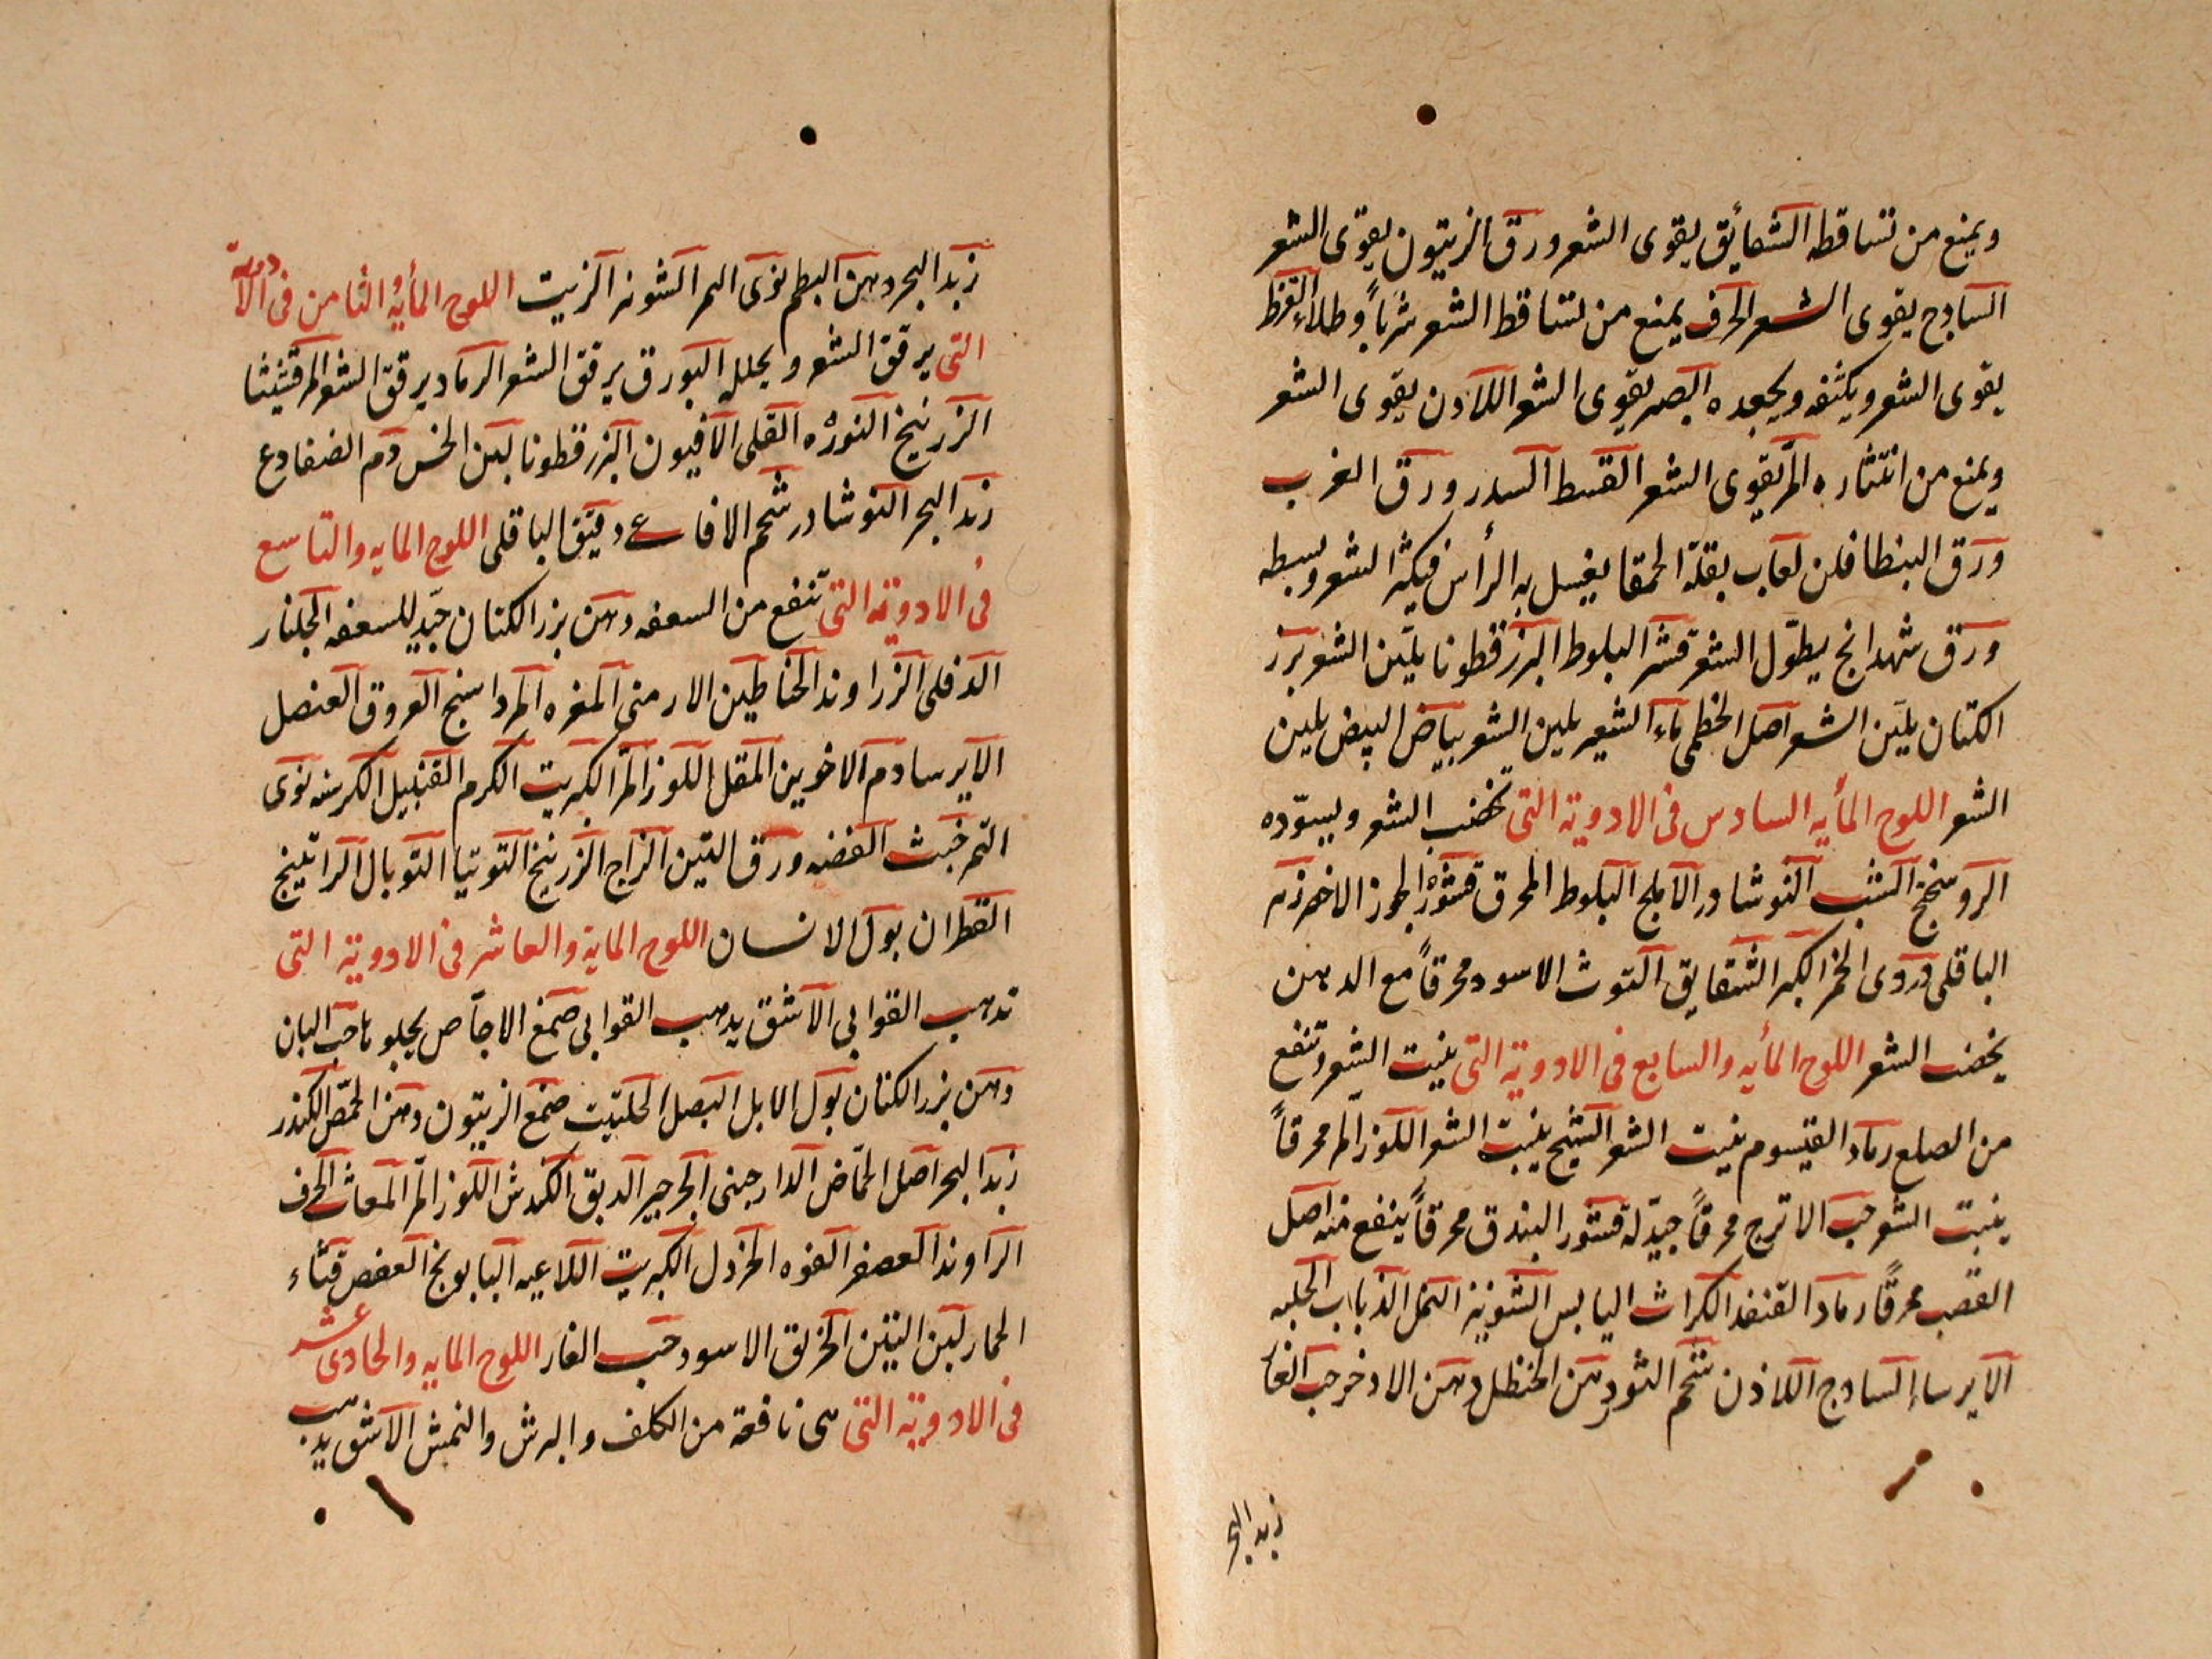 ويمنع من تساقطه الشقائق يقوى الشعر ورق الزيتون يقوى الشعر
السادج يقوى الشعر الحرف يمنع من تساقط الشعر شرباً وطلاءً القرظ
يقوى الشعر ويكثفه ويجعده البصر يقوى الشعر اللادن يقوى الشعر
ويمنع من انتثاره المر يقوى الشعر القسط السدر ورق الغرب
ورق البنطافلن لعاب بقلة الحمقا يغسل به الرأس فيكثر الشعر وبسطه
ورق شهدانج يطوّل الشعر قشر البلوط البزرقطونا يليّن الشعر بزر
الكتان يليّن الشعر اصل الخطمى ماء الشعير يلين الشعر بياض البيض يلين
الشعر اللوح المأيه السادس فى الادوية التى تخضب الشعر ويسوّده
الروسختج الشب النوشادر الاملج البلوط المحرق قشور الجوز الاخضر زهر
الباقلى دردى الخمر الكبر الشقايق التوث الاسود محرقاً مع الدهن
يخضب الشعر اللوح المأيه والسابع فى الادوية التى ينبت الشعر وتنفع
من الصلع رماد القيسوم ينبت الشعر الشيح ينبت الشعر اللوز المر محرقاً
ينبت الشعر حب الاترج محرقاً جيد له قشور البندق محرقاً ينفع منه اصل
القصب محرقاً رماد القنفد الكراث اليابس الشونيز النمل الذباب الحلبه
الايرساء السادج اللاذن شحم الثور دهن الحنظل دهن الادخر حب الغار
زبد البحر
زبد البحر دهن البطم نوى التمر الشونز الزيت اللوح المأيه الثامن فى الادوية
التى يرقق الشعر ويحلله البورق يرقق الشعر الرماد يرقق الشعر المرقشيثا
الزرنيخ النوره القلى الافيون البزرقطونا لبن الخس دم الضفادع
زبد البحر النوشادر شحم الافاعى دقيق الباقلى اللوح المايه والتاسع
فى الادوية التى تنفع من السعفه دهن بزر الكتان جيّد للسعفه الجلنار
الدفلى الزراوند الحنا طين الارمنى المغره المرداسنج العروق العنصل
الايرسا دم الاخوين المقل اللوز المر الكبريت الكرم القنبيل الكرسنه نوى
التمر خبث الفضه ورق التين الزاج الزرنيخ التوتيا التوبال الراتينج
القطران بول الانسان اللوح الماية والعاشر فى الادوية التى
تدهب القوابى الاشق يدهب القوابى صمغ الاجاص يجلوها حب البان
دهن بزر الكتان بول الابل البصل الحلتيت صمغ الزيتون دهن الحمّص الكندر
زبد البحر اصل الحمّاض الدارجينى الجرجير الدبق الكندش اللوز المر المغاث الحرف
الراوند العصفر الفوه الخردل الكبريت اللاعيه البابونج العفص قثاء
الحمار لبن التين الخربق الاسود حب الغار اللوح المايه والحادى عشر
فى الادوية التى هى نافعة من الكلف والبرش والنمش الاشق يدهب